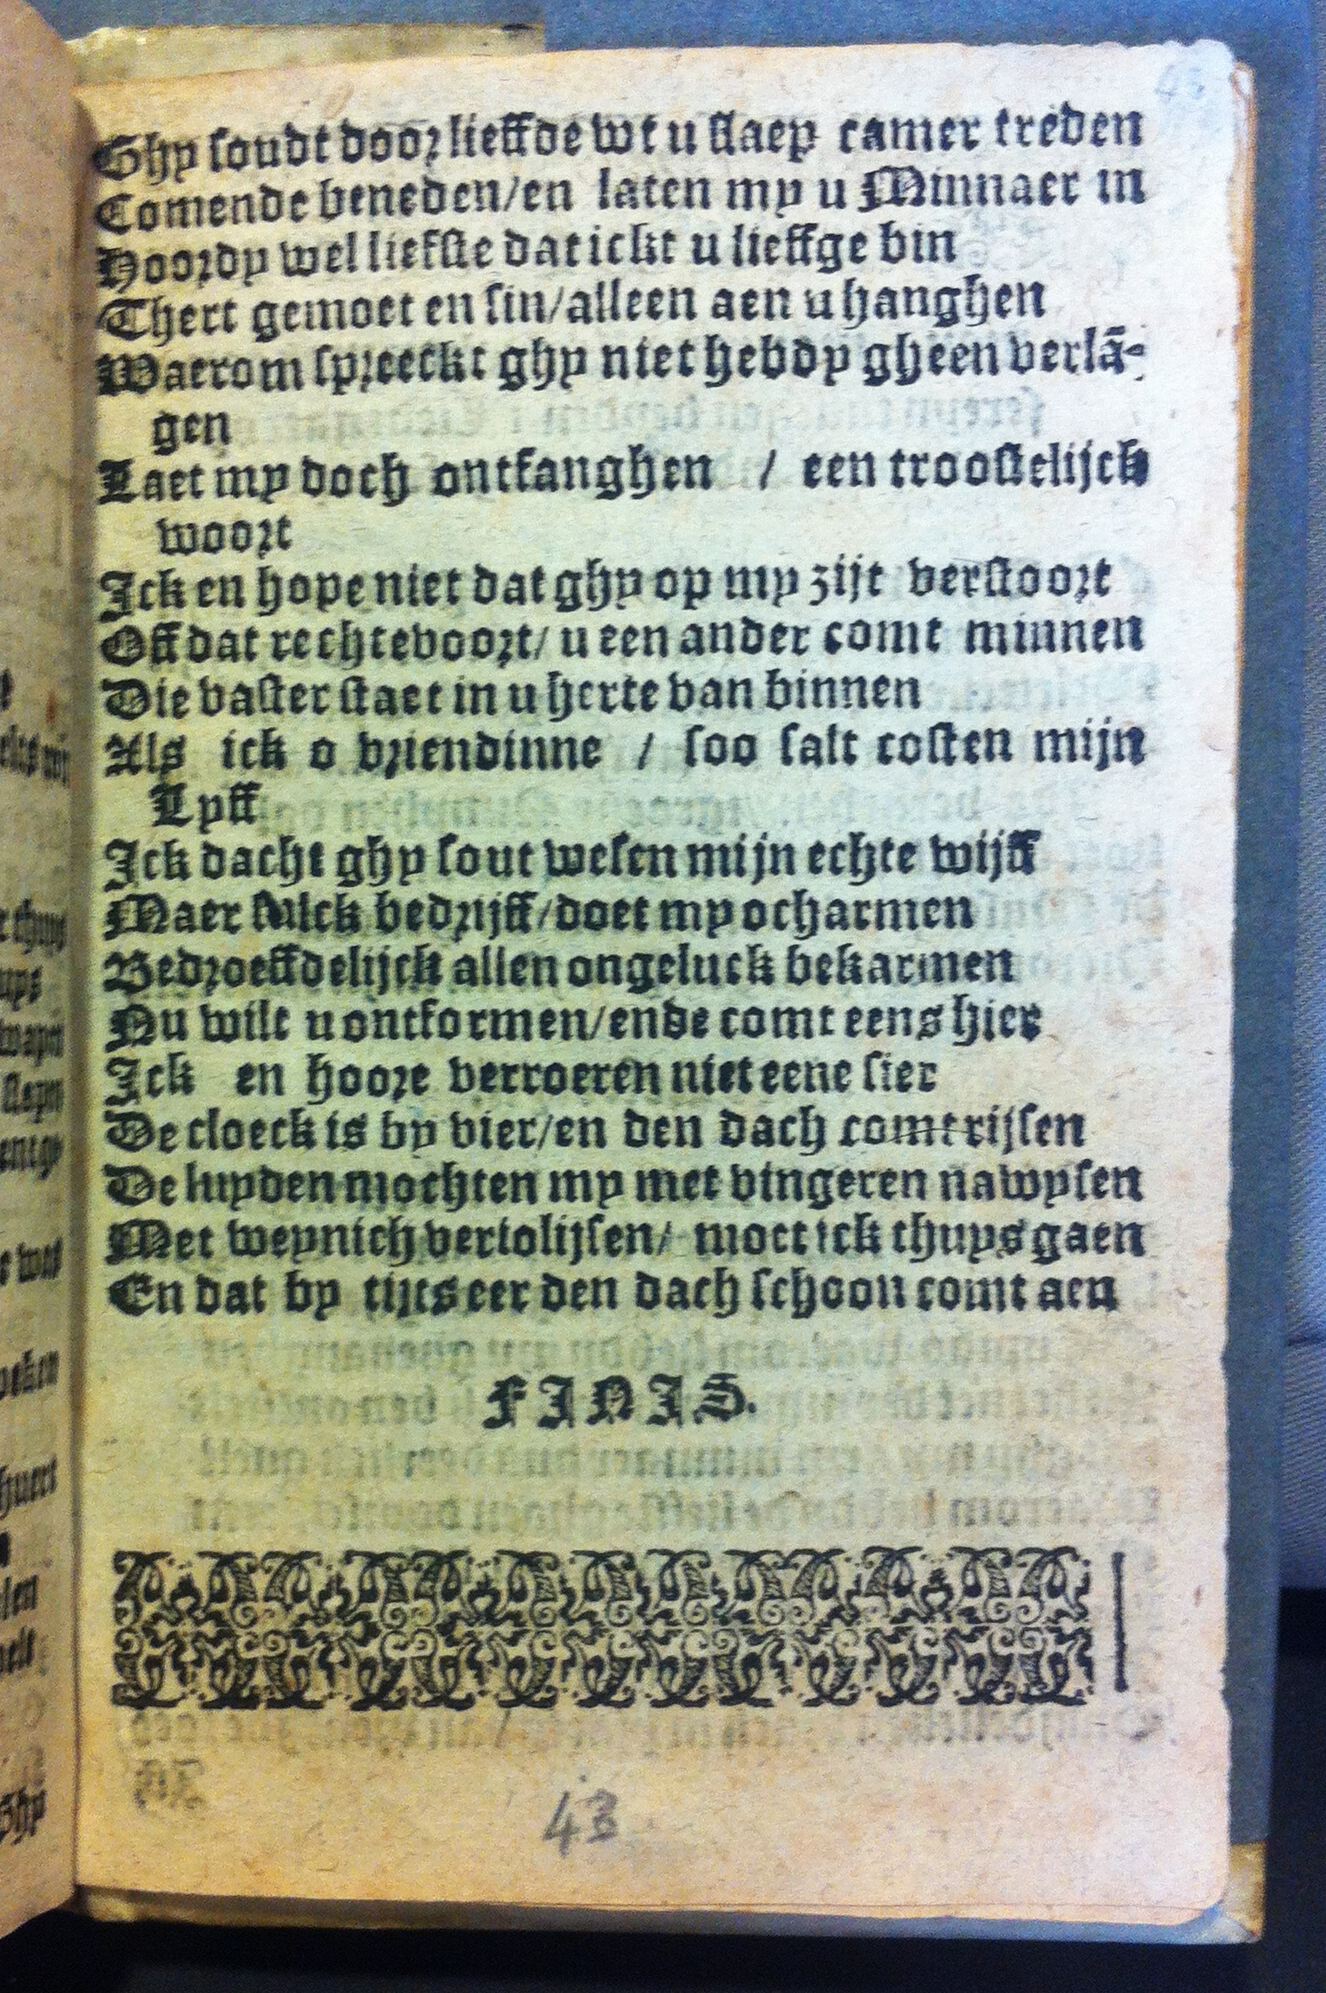 43
Ghy soudt door lieffde wt u slaep camer treden
Comende beneden/en laten my u Minnaer in
Hoordy wel liefste dat ickt u lieffge bin
Thert gemoet en sin/alleen aen u hanghen
Waerom spreeckt ghy niet hebdy gheen verlā-
gen
Laet my doch ontfanghen / een troostelijck
woort
Ick en hope niet dat ghy op my zijt verstoort
Off dat rechtevoort/ u een ander comt minnen
Die vaster staet in u herte van binnen
Als ick o vriendinne / soo salt costen mijn
Lyff
Ick dacht ghy sout wesen mijn echte wijff
Maer sulck bedrijff/doet my ocharmen
Bedroeffdelijck allen ongeluck bekarmen
Nu wilt u ontformen/ende comt eens hier
Ick en hoore verroeren niet eene sier
De cloeck is by vier/en den dach comt rijsen
De luyden mochten my met vingeren nawysen
Met weynich veriolijsen/ moet ick thuys gaen
En dat by tijts eer den dach schoon comt aen
FINIS.
43